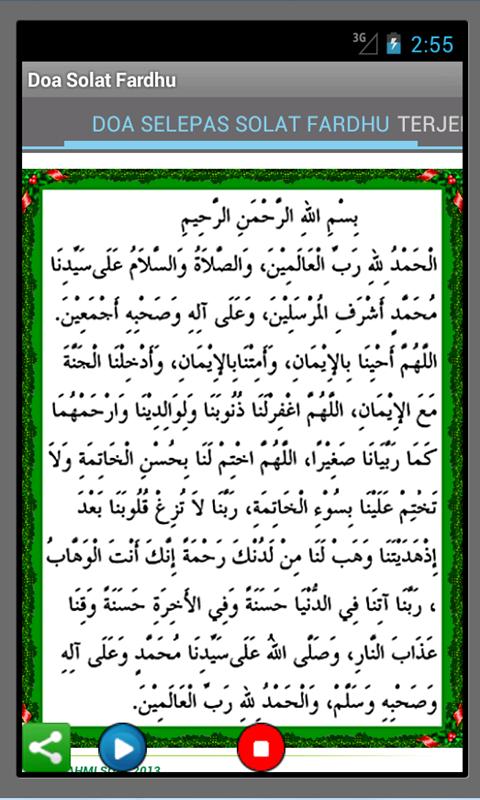 3G 2:55
Doa Solat Fardhu
DOA SELEPAS SOLAT FARDHU TERJE
بِسْمِ اللهِ الرَّحْمَنِ الرَّحِيمِ
الْحَمْدُ لِلهِ رَبِّ الْعَالَمِيْنَ، وَالصَّلَاةُ وَالسَّلَامُ عَلَى سَيِّدِنَا
مُحَمَّدٍ أَشْرَفِ الْمُرْسَلِيْنَ، وَعَلَى آلِهِ وَصَحْبِهِ أَجْمَعِيْنَ.
اللَّهُمَّ أَحْيِنَا بِالإِيْمَانِ، وَأَمِتْنَابِالإِيْمَانِ، وَأَدْخِلْنَا الْجَنَّةَ
مَعَ الإِيْمَانِ، اللَّهُمَّ اغْفِرْلَنَا ذُنُوبَنَا وَلِوَالِدِيْنَا وَارْحَمْهُمَا
كَمَا رَبَّيَانَا صَغِيْرًا، اللَّهُمَّ اخْتِمْ لَنَا بِحُسْنِ الْخَاتِمَةِ وَلَا
تَخْتِمْ عَلَيْنَا بِسُوْءِ الْخَاتِمَةِ، رَبَّنَا لَا تُزِغْ قُلُوبَنَا بَعْدَ
إِذْهَدَيْتَنَا وَهَبْ لَنَا مِنْ لَدُنْكَ رَحْمَةً إِنَّكَ أَنْتَ الْوَهَّابُ
، رَبَّنَا آتِنَا فِي الدُّنْيَا حَسَنَةً وَفِي الْأَخِرَةِ حَسَنَةً وَقِنَا
عَذَابَ النَّارِ، وَصَلَّى اللهُ عَلَى سَيِّدِنَا مُحَمَّدٍ وَعَلَى آلِهِ
وَصَحْبِهِ وَسَلَّمْ، وَالْحَمْدُ لِلهِ رَبِّ الْعَالَمِيْنَ.
2013